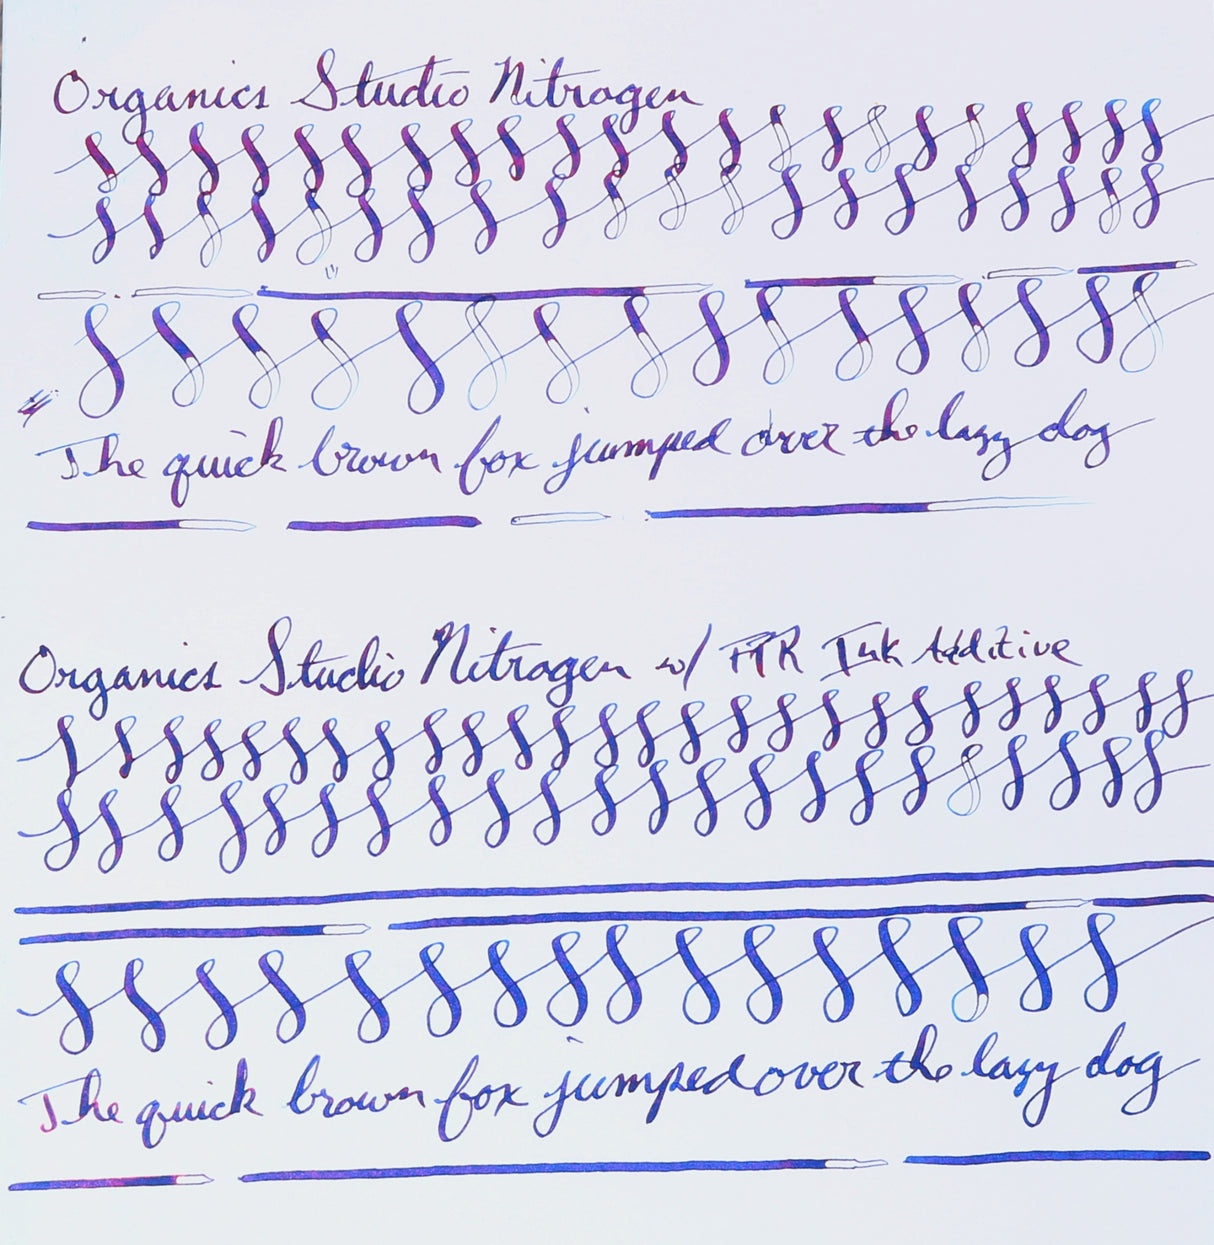 Organics Studio Nitrogen
The quick brown fox jumped over the lazy dog
Organics Studio Nitrogen w/ FTR Ink Additive
The quick brown fox jumped over the lazy dog